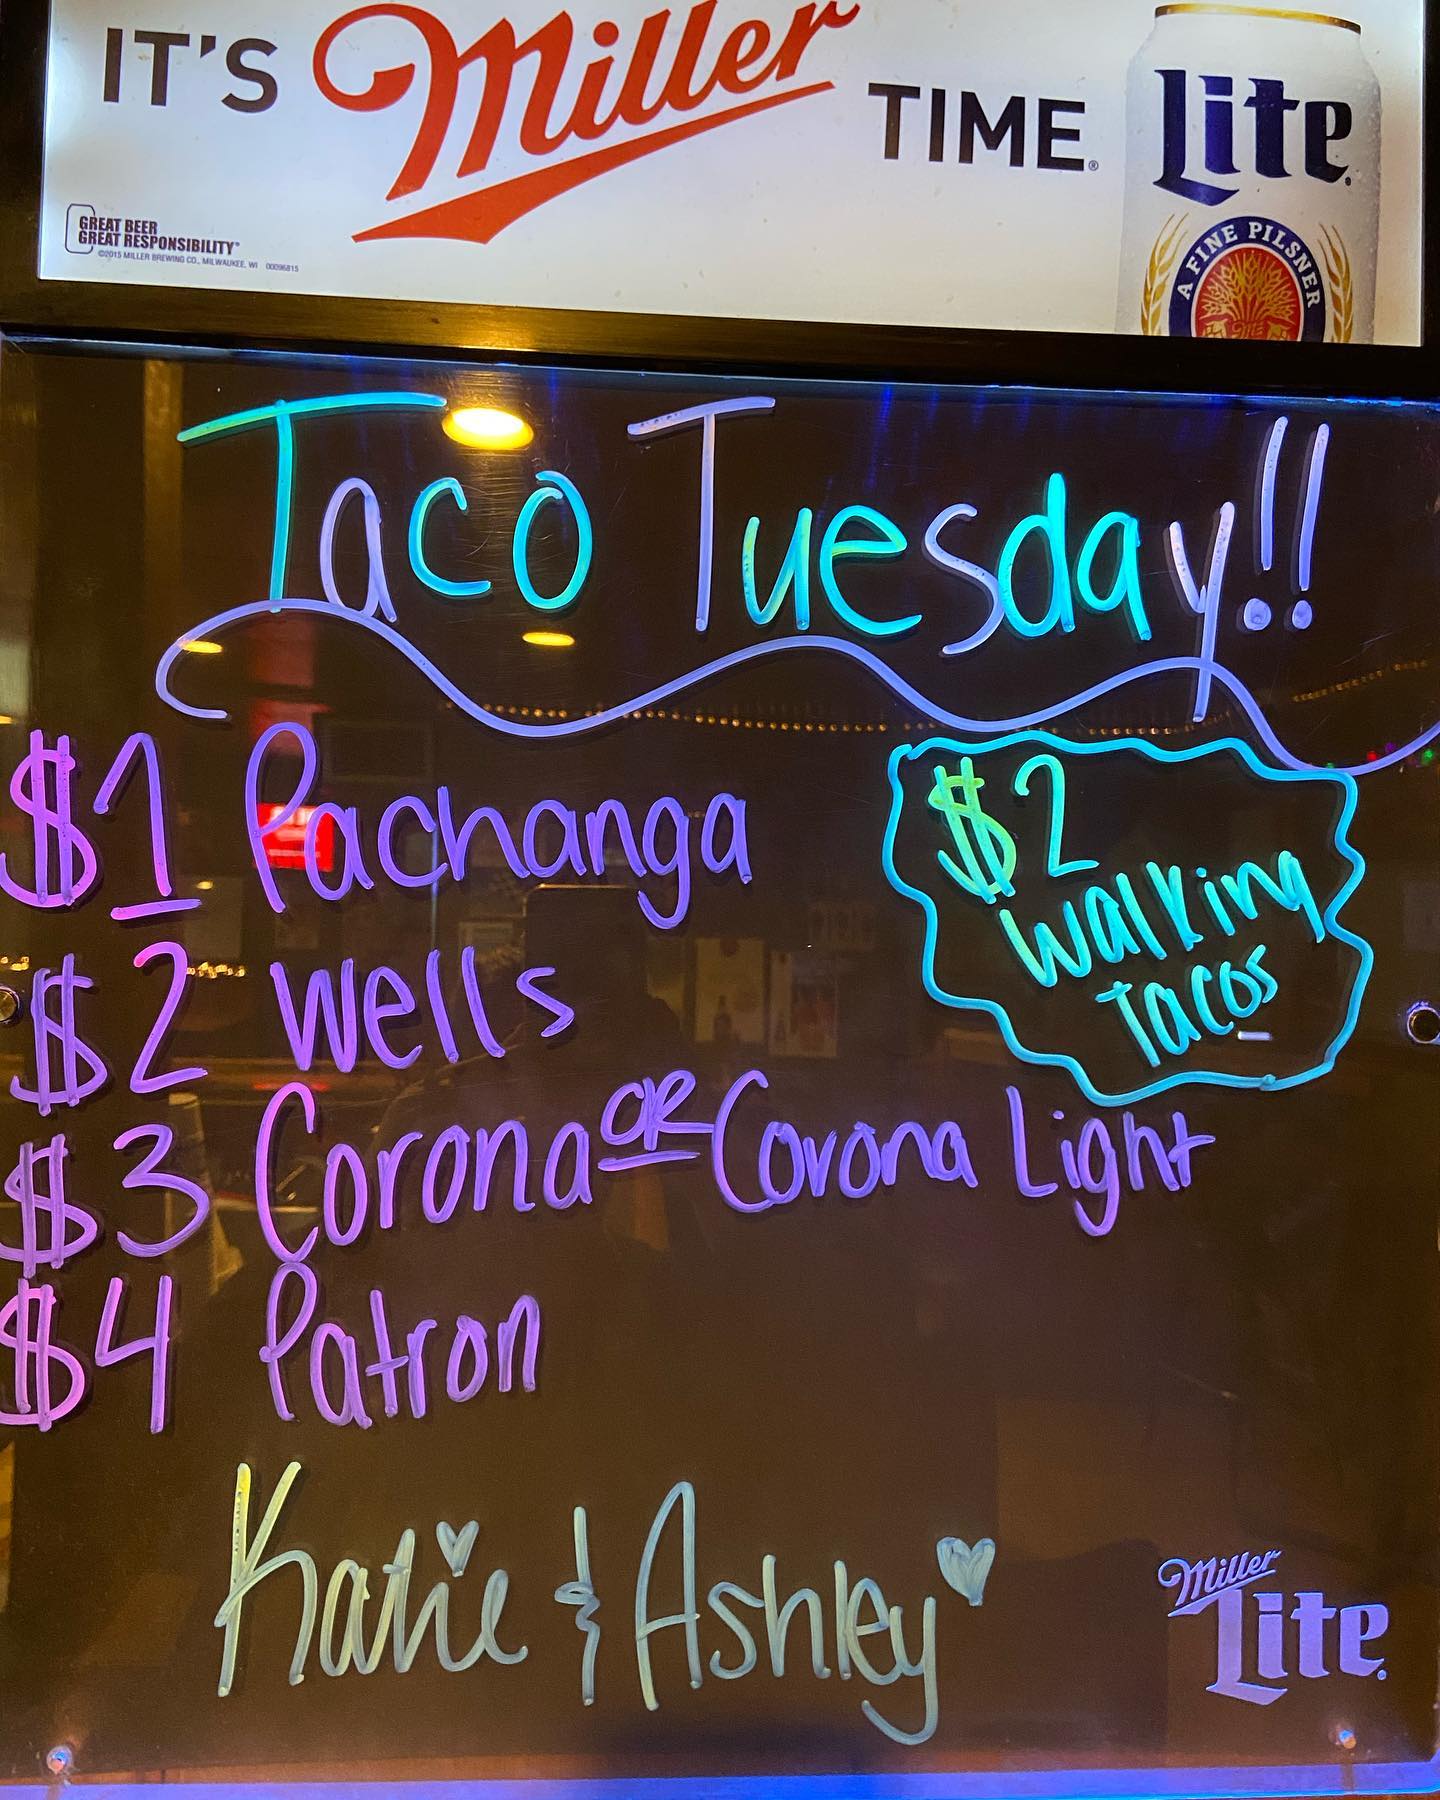 IT'S Miller TIME®
Lite
A FINE PILSNER
GREAT BEER
GREAT RESPONSIBILITY®
©2015 MILLER BREWING CO., MILWAUKEE, WI 00096815
Taco Tuesday!!
$1 Pachanga
$2
Walking
Tacos
$2 Wells
$3 Corona OR Corona Light
$4 Patron
Katie & Ashley
Miller
Lite